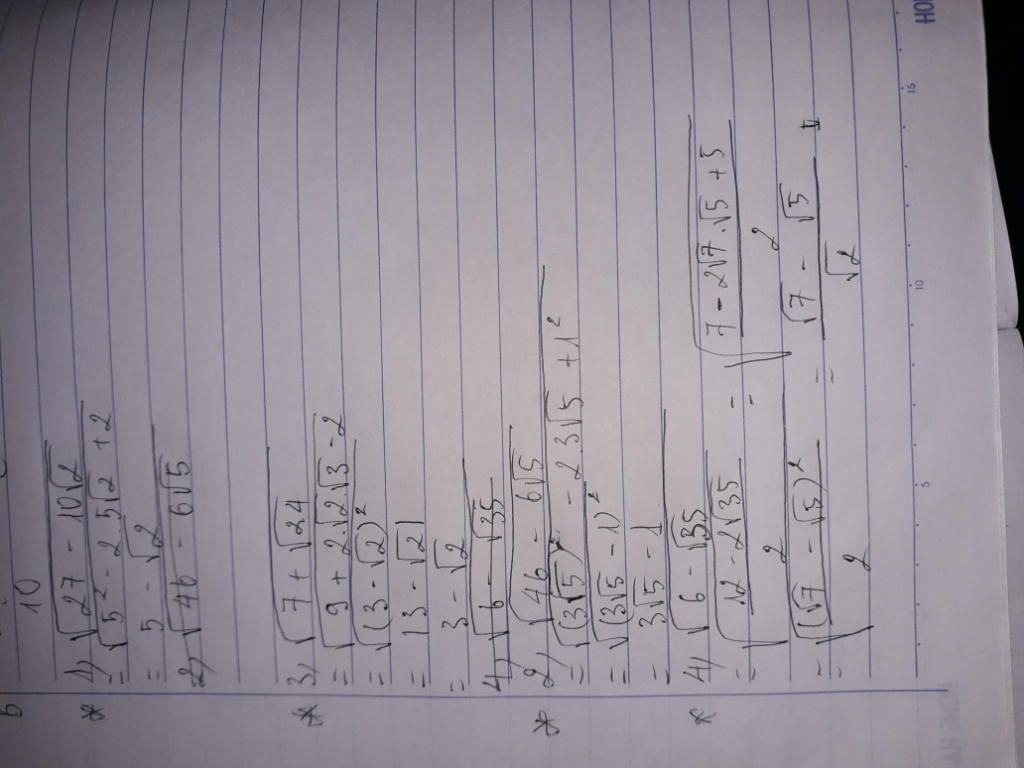 10
1) √27 - 10√2
= √5² - 2.5√2 + 2
= 5 - √2
2) √46 - 6√5
3) √7 + √24
= √9 + 2.√2.√3 - 2
= √(3 - √2)²
= |3 - √2|
= 3 - √2
4) √6 - √35
2) √46 - 6√5
= √(3√5)² - 2.3√5 + 1²
= √(3√5 - 1)²
= 3√5 - 1
4) √6 - √35
= √(12 - 2√35)/2 = √(7 - 2√7.√5 + 5)/2
= √(√7 - √5)²/2 = (√7 - √5)/√2
5 10 15